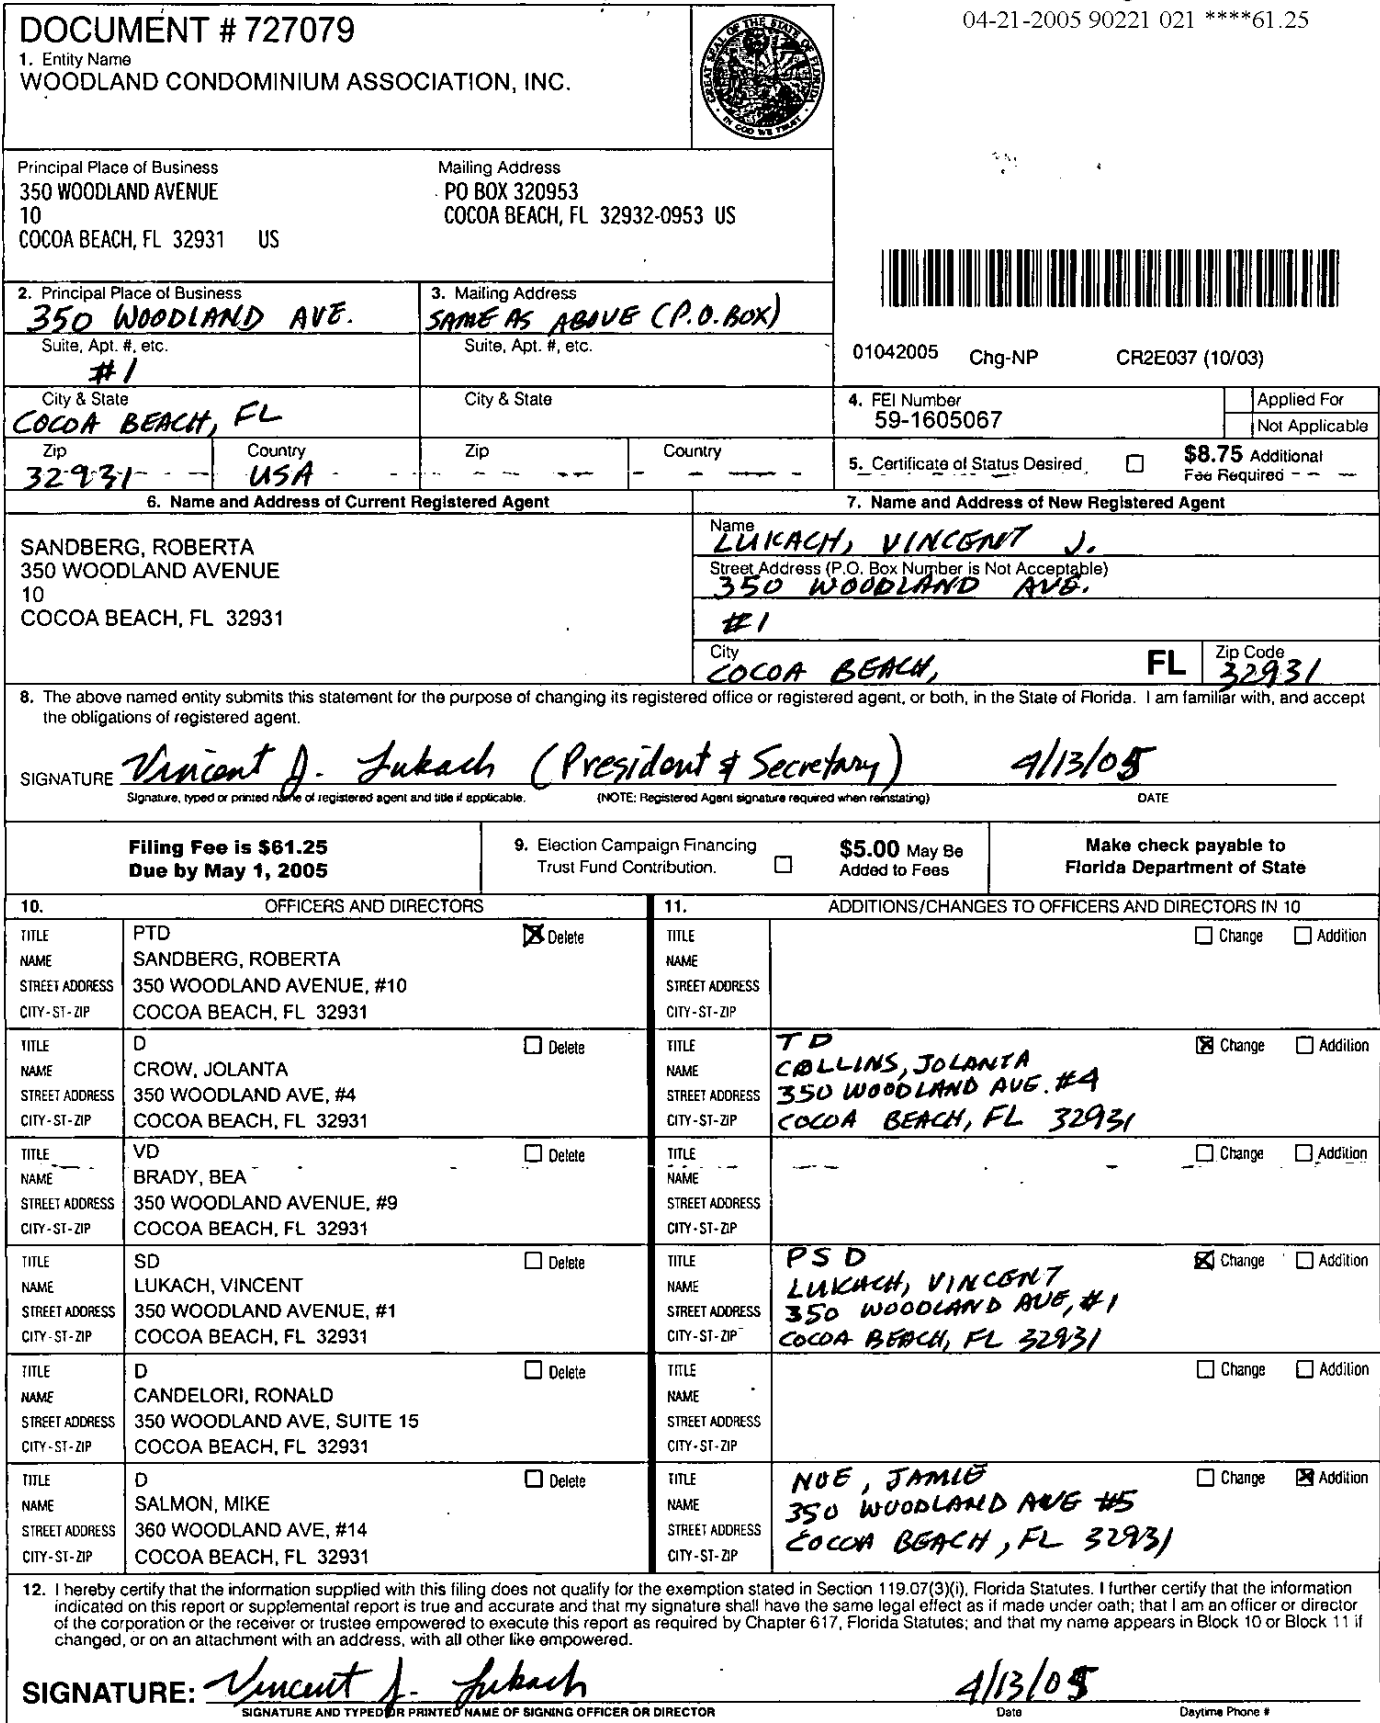 04-21-2005 90221 021 ****61.25
DOCUMENT # 727079
1. Entity Name
WOODLAND CONDOMINIUM ASSOCIATION, INC.
GREAT SEAL OF THE STATE OF FLORIDA
IN GOD WE TRUST
Principal Place of Business
350 WOODLAND AVENUE
10
COCOA BEACH, FL 32931 US
Mailing Address
PO BOX 320953
COCOA BEACH, FL 32932-0953 US
2. Principal Place of Business
350 WOODLAND AVE.
Suite, Apt. #, etc.
#1
City & State
COCOA BEACH, FL
Zip
32931
Country
USA
3. Mailing Address
SAME AS ABOVE (P.O. BOX)
Suite, Apt. #, etc.
City & State
Zip
Country
01042005 Chg-NP CR2E037 (10/03)
4. FEI Number
59-1605067
Applied For
Not Applicable
5. Certificate of Status Desired
$8.75 Additional
Fee Required
6. Name and Address of Current Registered Agent
SANDBERG, ROBERTA
350 WOODLAND AVENUE
10
COCOA BEACH, FL 32931
7. Name and Address of New Registered Agent
Name
LUKACH, VINCENT J.
Street Address (P.O. Box Number is Not Acceptable)
350 WOODLAND AVE.
#1
City
COCOA BEACH,
FL
Zip Code
32931
8. The above named entity submits this statement for the purpose of changing its registered office or registered agent, or both, in the State of Florida. I am familiar with, and accept
the obligations of registered agent.
SIGNATURE Vincent J. Lukach (President & Secretary) 4/13/05
Signature, typed or printed name of registered agent and title if applicable. (NOTE: Registered Agent signature required when reinstating) DATE
Filing Fee is $61.25
Due by May 1, 2005
9. Election Campaign Financing
Trust Fund Contribution.
$5.00 May Be
Added to Fees
Make check payable to
Florida Department of State
10. OFFICERS AND DIRECTORS
11. ADDITIONS/CHANGES TO OFFICERS AND DIRECTORS IN 10
TITLE PTD Delete
NAME SANDBERG, ROBERTA
STREET ADDRESS 350 WOODLAND AVENUE, #10
CITY-ST-ZIP COCOA BEACH, FL 32931
TITLE Change Addition
NAME
STREET ADDRESS
CITY-ST-ZIP
TITLE D Delete
NAME CROW, JOLANTA
STREET ADDRESS 350 WOODLAND AVE, #4
CITY-ST-ZIP COCOA BEACH, FL 32931
TITLE TD Change Addition
NAME COLLINS, JOLANTA
STREET ADDRESS 350 WOODLAND AVE. #4
CITY-ST-ZIP COCOA BEACH, FL 32931
TITLE VD Delete
NAME BRADY, BEA
STREET ADDRESS 350 WOODLAND AVENUE, #9
CITY-ST-ZIP COCOA BEACH, FL 32931
TITLE Change Addition
NAME
STREET ADDRESS
CITY-ST-ZIP
TITLE SD Delete
NAME LUKACH, VINCENT
STREET ADDRESS 350 WOODLAND AVENUE, #1
CITY-ST-ZIP COCOA BEACH, FL 32931
TITLE PSD Change Addition
NAME LUKACH, VINCENT
STREET ADDRESS 350 WOODLAND AVE, #1
CITY-ST-ZIP COCOA BEACH, FL 32931
TITLE D Delete
NAME CANDELORI, RONALD
STREET ADDRESS 350 WOODLAND AVE, SUITE 15
CITY-ST-ZIP COCOA BEACH, FL 32931
TITLE Change Addition
NAME
STREET ADDRESS
CITY-ST-ZIP
TITLE D Delete
NAME SALMON, MIKE
STREET ADDRESS 360 WOODLAND AVE, #14
CITY-ST-ZIP COCOA BEACH, FL 32931
TITLE NOE, JAMIE Change Addition
NAME 350 WOODLAND AVE #5
STREET ADDRESS COCOA BEACH, FL 32931
CITY-ST-ZIP
12. I hereby certify that the information supplied with this filing does not qualify for the exemption stated in Section 119.07(3)(i), Florida Statutes. I further certify that the information
indicated on this report or supplemental report is true and accurate and that my signature shall have the same legal effect as if made under oath; that I am an officer or director
of the corporation or the receiver or trustee empowered to execute this report as required by Chapter 617, Florida Statutes; and that my name appears in Block 10 or Block 11 if
changed, or on an attachment with an address, with all other like empowered.
SIGNATURE: Vincent J. Lukach 4/13/05
SIGNATURE AND TYPED OR PRINTED NAME OF SIGNING OFFICER OR DIRECTOR Date Daytime Phone #